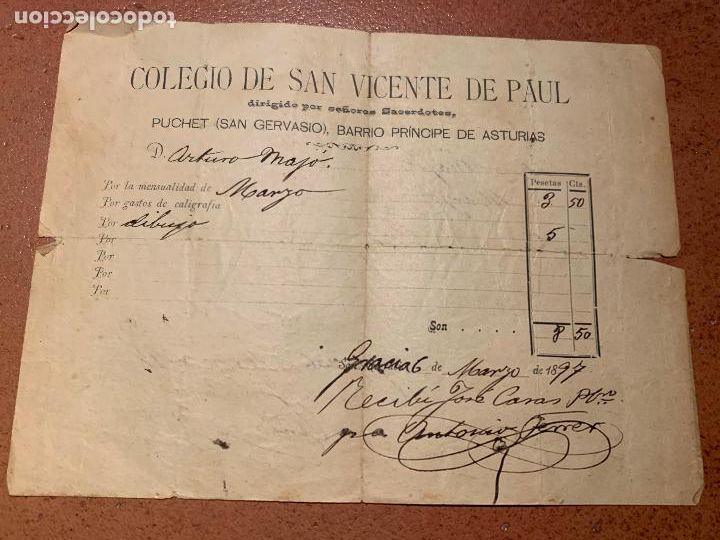 todocoleccion
COLEGIO DE SAN VICENTE DE PAUL
dirigido por señores Sacerdotes,
PUCHET (SAN GERVASIO), BARRIO PRÍNCIPE DE ASTURIAS
D. Arturo Majó.
Pesetas Cts.
Por la mensualidad de Marzo 3 50
Por gastos de caligrafía
Por dibujo 5
Por
Por
Por
Por
Son . . . . 8 50
Gracia 6 de Marzo de 1897
Recibí José Casas Pbro
pa Antonio Ferrer